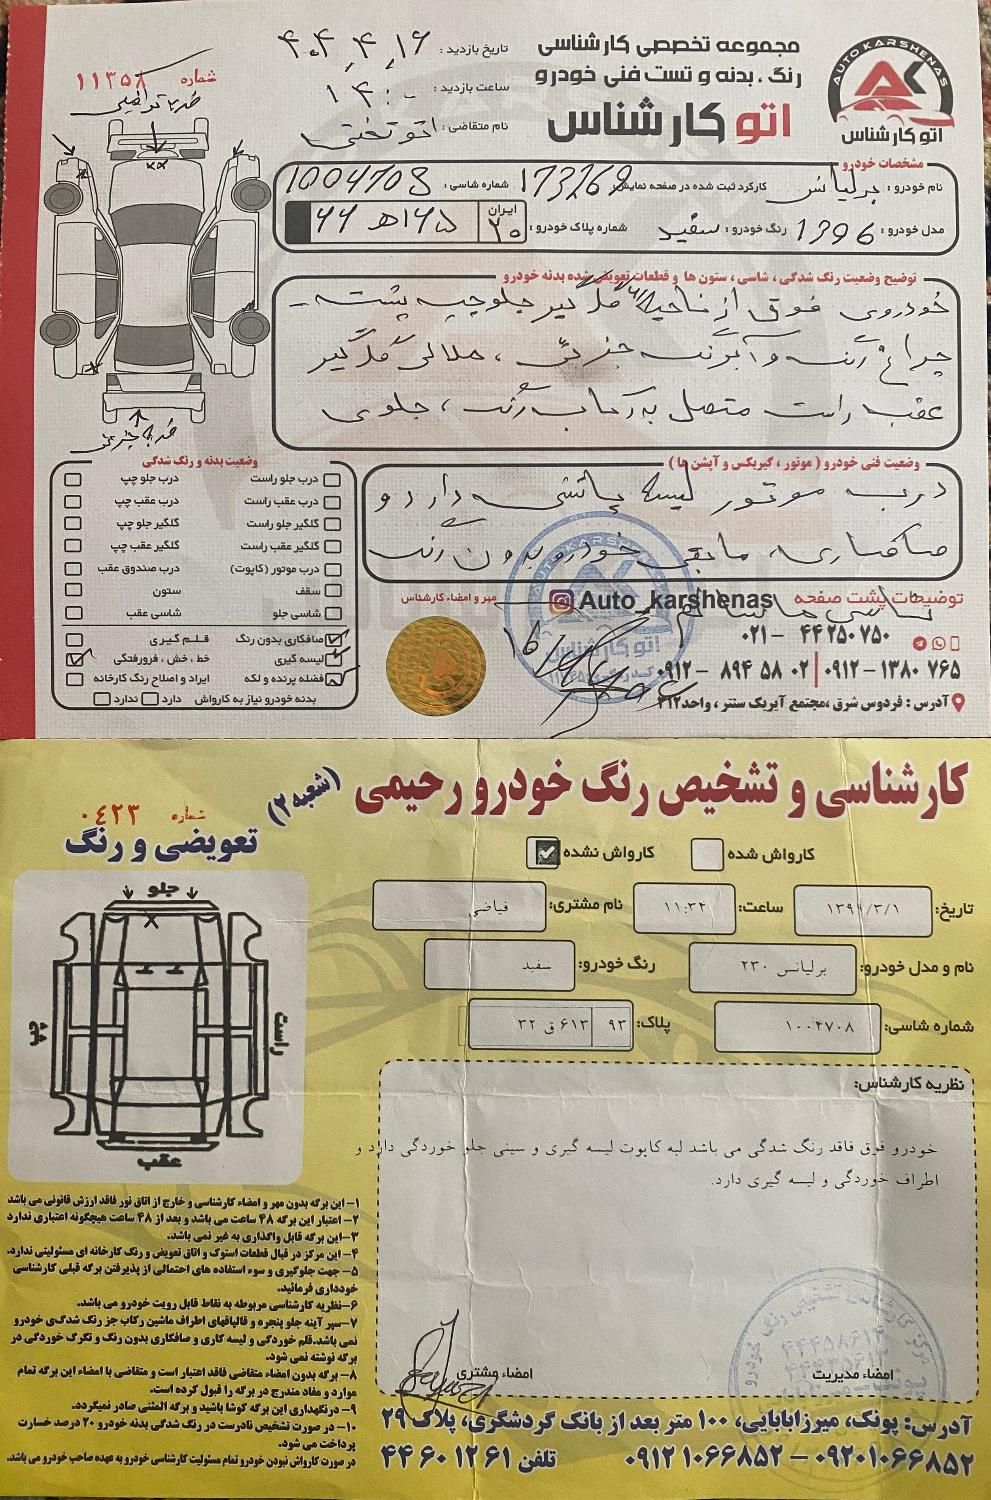 مجموعه تخصصی کارشناسی
رنگ، بدنه و تست فنی خودرو
اتو کارشناس
AUTO KARSHENAS
اتو کارشناس
تاریخ بازدید: ۴۰۴,۴,۱۶
ساعت بازدید: ۱۴:۰۰
نام متقاضی: اتو تختی
شماره ۱۱۳۵۸
مشخصات خودرو
نام خودرو: برلیانس کارکرد ثبت شده در صفحه نمایش: 173268 شماره شاسی: 1004708
مدل خودرو: 1396 رنگ خودرو: سفید شماره پلاک خودرو: ایران ۲۰
توضیح وضعیت رنگ شدگی، شاسی، ستون ها و قطعات تعویض شده بدنه خودرو
خودروی فوق از ناحیه گلگیر جلو چپ پشت
چراغ رنگ و آبرنگ جزئی، هلالی گلگیر
عقب راست متصل به رکاب رنگ، جلوی
وضعیت فنی خودرو (موتور، گیربکس و آپشن ها)
درب موتور لیسه پاششی دارد و
صافکاری، مابقی خودرو بدون رنگ
ضربه جزئی
وضعیت بدنه و رنگ شدگی
درب جلو راست درب جلو چپ
درب عقب راست درب عقب چپ
گلگیر جلو راست گلگیر جلو چپ
گلگیر عقب راست گلگیر عقب چپ
درب موتور (کاپوت) درب صندوق عقب
سقف ستون
شاسی جلو شاسی عقب
صافکاری بدون رنگ قلم گیری
لیسه گیری خط، خش، فرورفتگی
فضله پرنده و لکه ایراد و اصلاح رنگ کارخانه
بدنه خودرو نیاز به کارواش دارد ندارد
مهر و امضاء کارشناس
توضیحات پشت صفحه
Auto_karshenas
۰۲۱- ۴۴ ۲۵۰ ۷۵۰
۰۹۱۲- ۸۹۴ ۵۸ ۰۲ | ۰۹۱۲-۱۳۸۰ ۷۶۵
آدرس: فردوس شرق، مجتمع آیریک سنتر، واحد ۳۱۲
کارشناسی و تشخیص رنگ خودرو رحیمی (شعبه ۲)
شماره ۰۴۲۳
تعویضی و رنگ
کارواش شده کارواش نشده
تاریخ: ۱۳۹۹/۳/۱ ساعت: ۱۱:۳۲ نام مشتری: فیاضی
نام و مدل خودرو: برلیانس ۲۳۰ رنگ خودرو: سفید
شماره شاسی: ۱۰۰۴۷۰۸ پلاک: ۹۳ ۶۱۳ ق ۳۲
جلو
راست
چپ
عقب
نظریه کارشناس:
خودرو فوق فاقد رنگ شدگی می باشد لبه کاپوت لیسه گیری و سینی جلو خوردگی دارد و
اطراف خوردگی و لیسه گیری دارد.
۱- این برگه بدون مهر و امضاء کارشناسی و خارج از اتاق نور فاقد ارزش قانونی می باشد
۲- اعتبار این برگه ۴۸ ساعت می باشد و بعد از ۴۸ ساعت هیچگونه اعتباری ندارد
۳- این برگه قابل واگذاری به غیر نمی باشد.
۴- این مرکز در قبال قطعات استوک و اتاق تعویض و رنگ کارخانه ای مسئولیتی ندارد.
۵- جهت جلوگیری و سوء استفاده های احتمالی از پذیرفتن برگه قبلی کارشناسی
خودداری فرمائید.
۶- نظریه کارشناسی مربوطه به نقاط قابل رویت خودرو می باشد.
۷- سپر آینه جلو پنجره و قالپاقهای اطراف ماشین رکاب جز رنگ شدگی خودرو
نمی باشد. قلم خوردگی و لیسه کاری و صافکاری بدون رنگ و تگرگ خوردگی در
برگه نوشته نمی شود.
۸- برگه بدون امضاء متقاضی فاقد اعتبار است و متقاضی با امضاء این برگه تمام
موارد و مفاد مندرج در برگه را قبول کرده است.
۹- در نگهداری این برگه کوشا باشید و برگه المثنی صادر نمیگردد.
۱۰- در صورت تشخیص نادرست در رنگ شدگی بدنه خودرو ۲۰ درصد خسارت
پرداخت می شود.
در صورت کارواش نبودن خودرو تمام مسئولیت کارشناسی خودرو به عهده صاحب خودرو می باشد.
امضاء مشتری امضاء مدیریت
آدرس: پونک، میرزابابایی، ۱۰۰ متر بعد از بانک گردشگری، پلاک ۲۹
تلفن ۴۴ ۶۰ ۱۲ ۶۱ ۰۹۱۲ ۱۰۶۶۸۵۲ - ۰۹۲۰۱۰۶۶۸۵۲